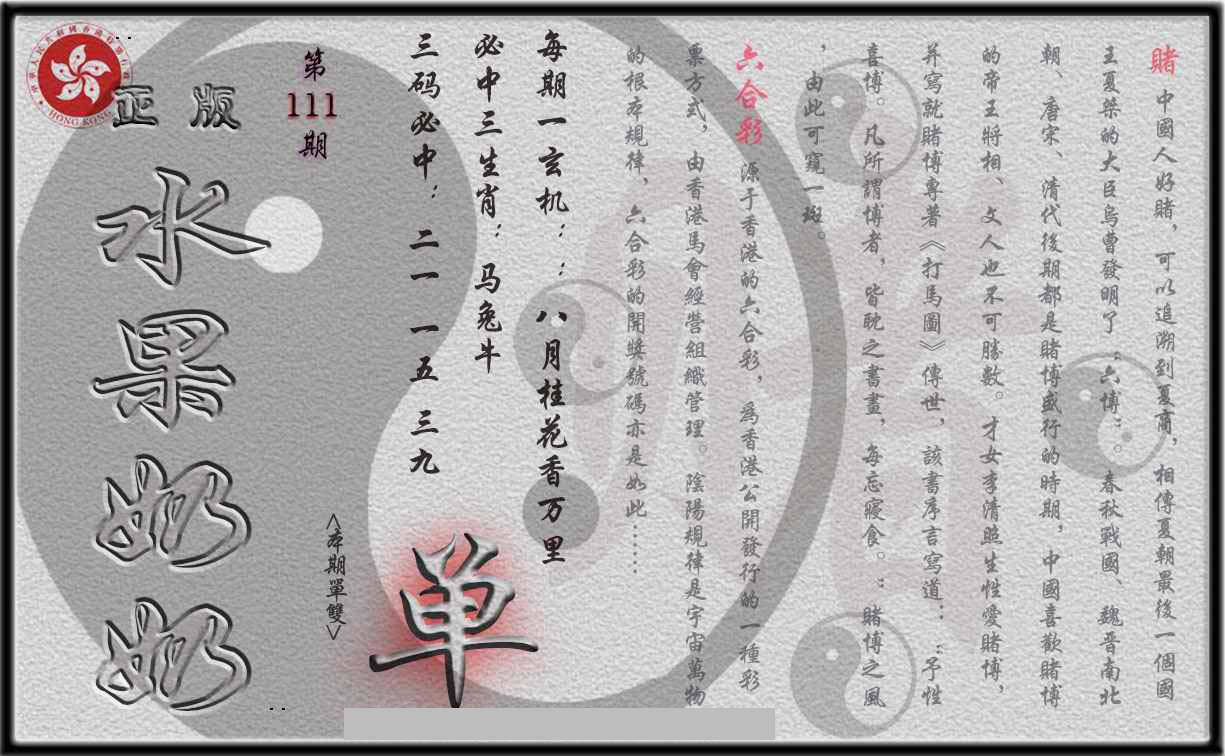 賭 中國人好賭，可以追溯到夏商，相傳夏朝最後一個國
王夏桀的大臣烏曹發明了“六博”。春秋戰國、魏晋南北
朝、唐宋、清代後期都是賭博盛行的時期，中國喜歡賭博
的帝王將相、文人也不可勝數。才女李清照生性愛賭博，
并寫就賭博專著《打馬圖》傳世，該書序言寫道：“予性
喜博。凡所謂博者，皆耽之晝晝，每忘寢食。”賭博之風
，由此可窺一斑。
六合彩 源于香港的六合彩，為香港公開發行的一種彩
票方式，由香港馬會經營組織管理。陰陽規律是宇宙萬物
的根本規律、六合彩的開獎號碼亦是如此……
每期一玄机：：八月桂花香万里
必中三生肖：马兔牛
三码必中：二一 一五 三九
第
111
期
<本期單雙>
单
正版
水果奶奶
HONG KONG